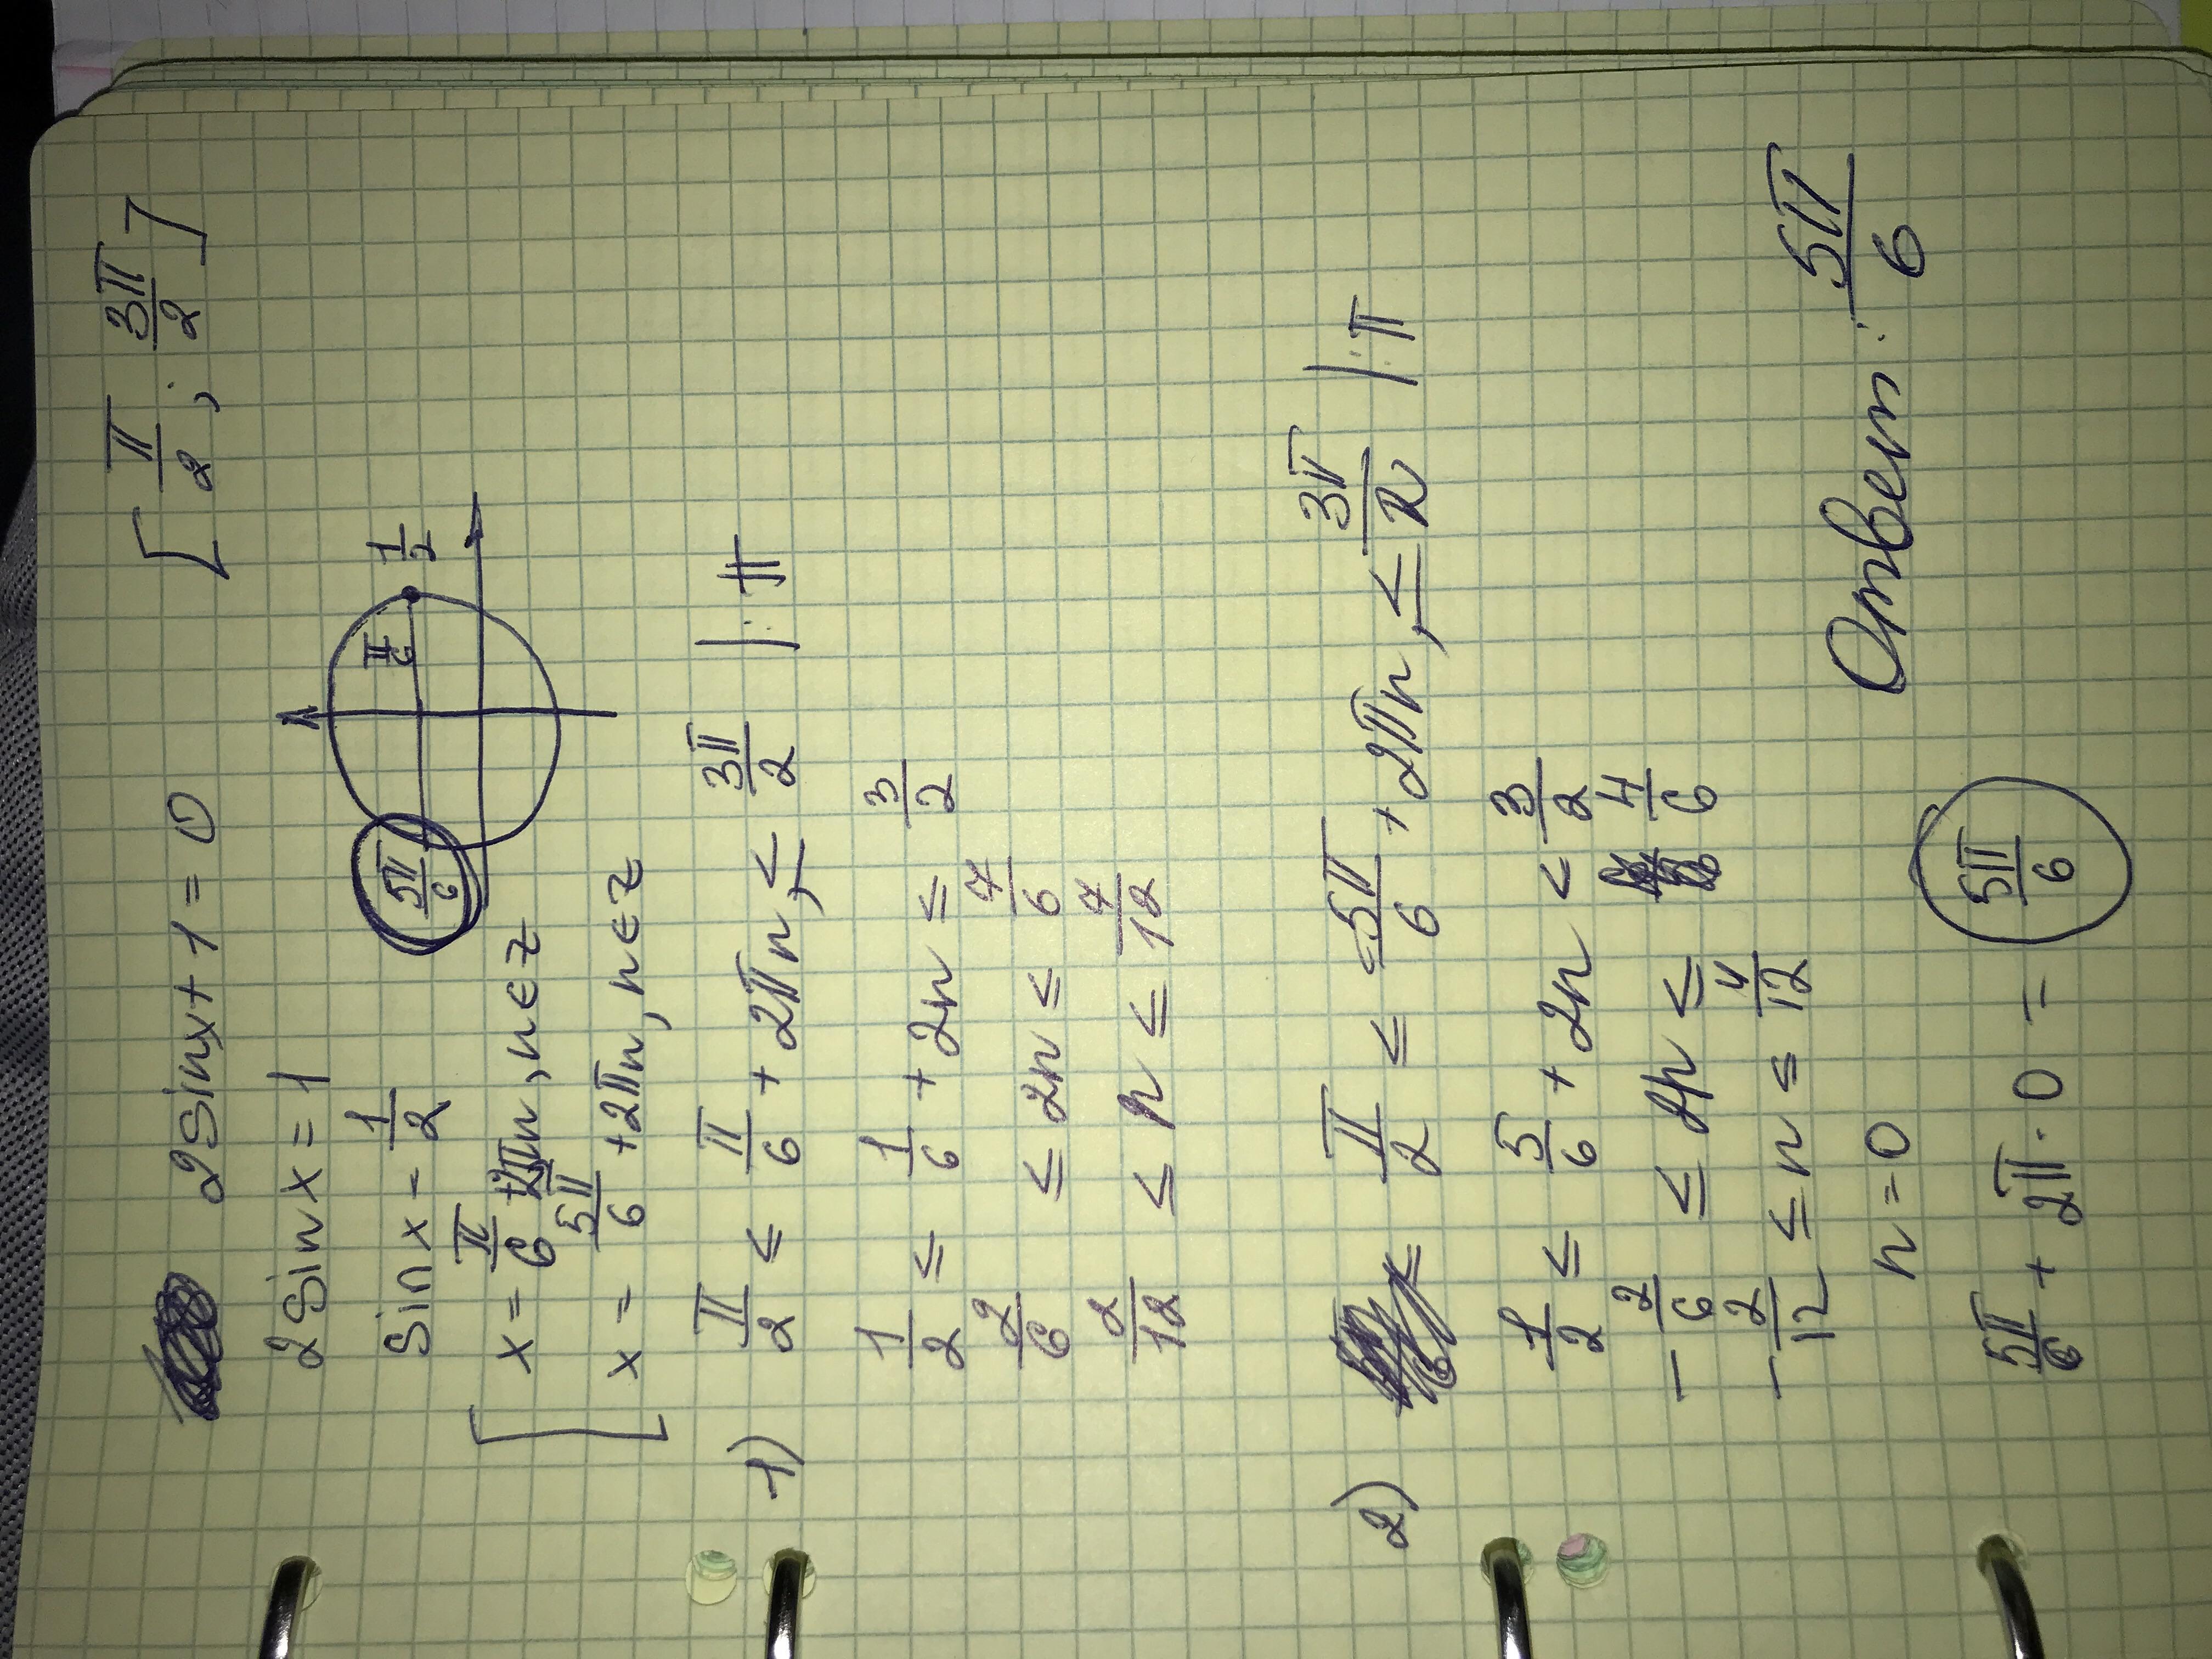 2sinx + 1 = 0 [π/2; 3π/2]
2sinx = 1
sinx = 1/2
x = π/6 +2πn, n∈z
x = 5π/6 +2πn, n∈z
5π/6 π/6 1/2
1) π/2 ≤ π/6 + 2πn, ≤ 3π/2 |:π
1/2 ≤ 1/6 + 2n ≤ 3/2
2/6 ≤ 2n ≤ 7/6
2/12 ≤ n ≤ 7/12
2) π/2 ≤ 5π/6 + 2πn, ≤ 3π/2 |:π
1/2 ≤ 5/6 + 2n < 3/2
-2/6 ≤ 2n ≤ 4/6
-2/12 ≤ n ≤ 4/12
n = 0
5π/6 + 2π·0 = 5π/6
Ответ: 5π/6